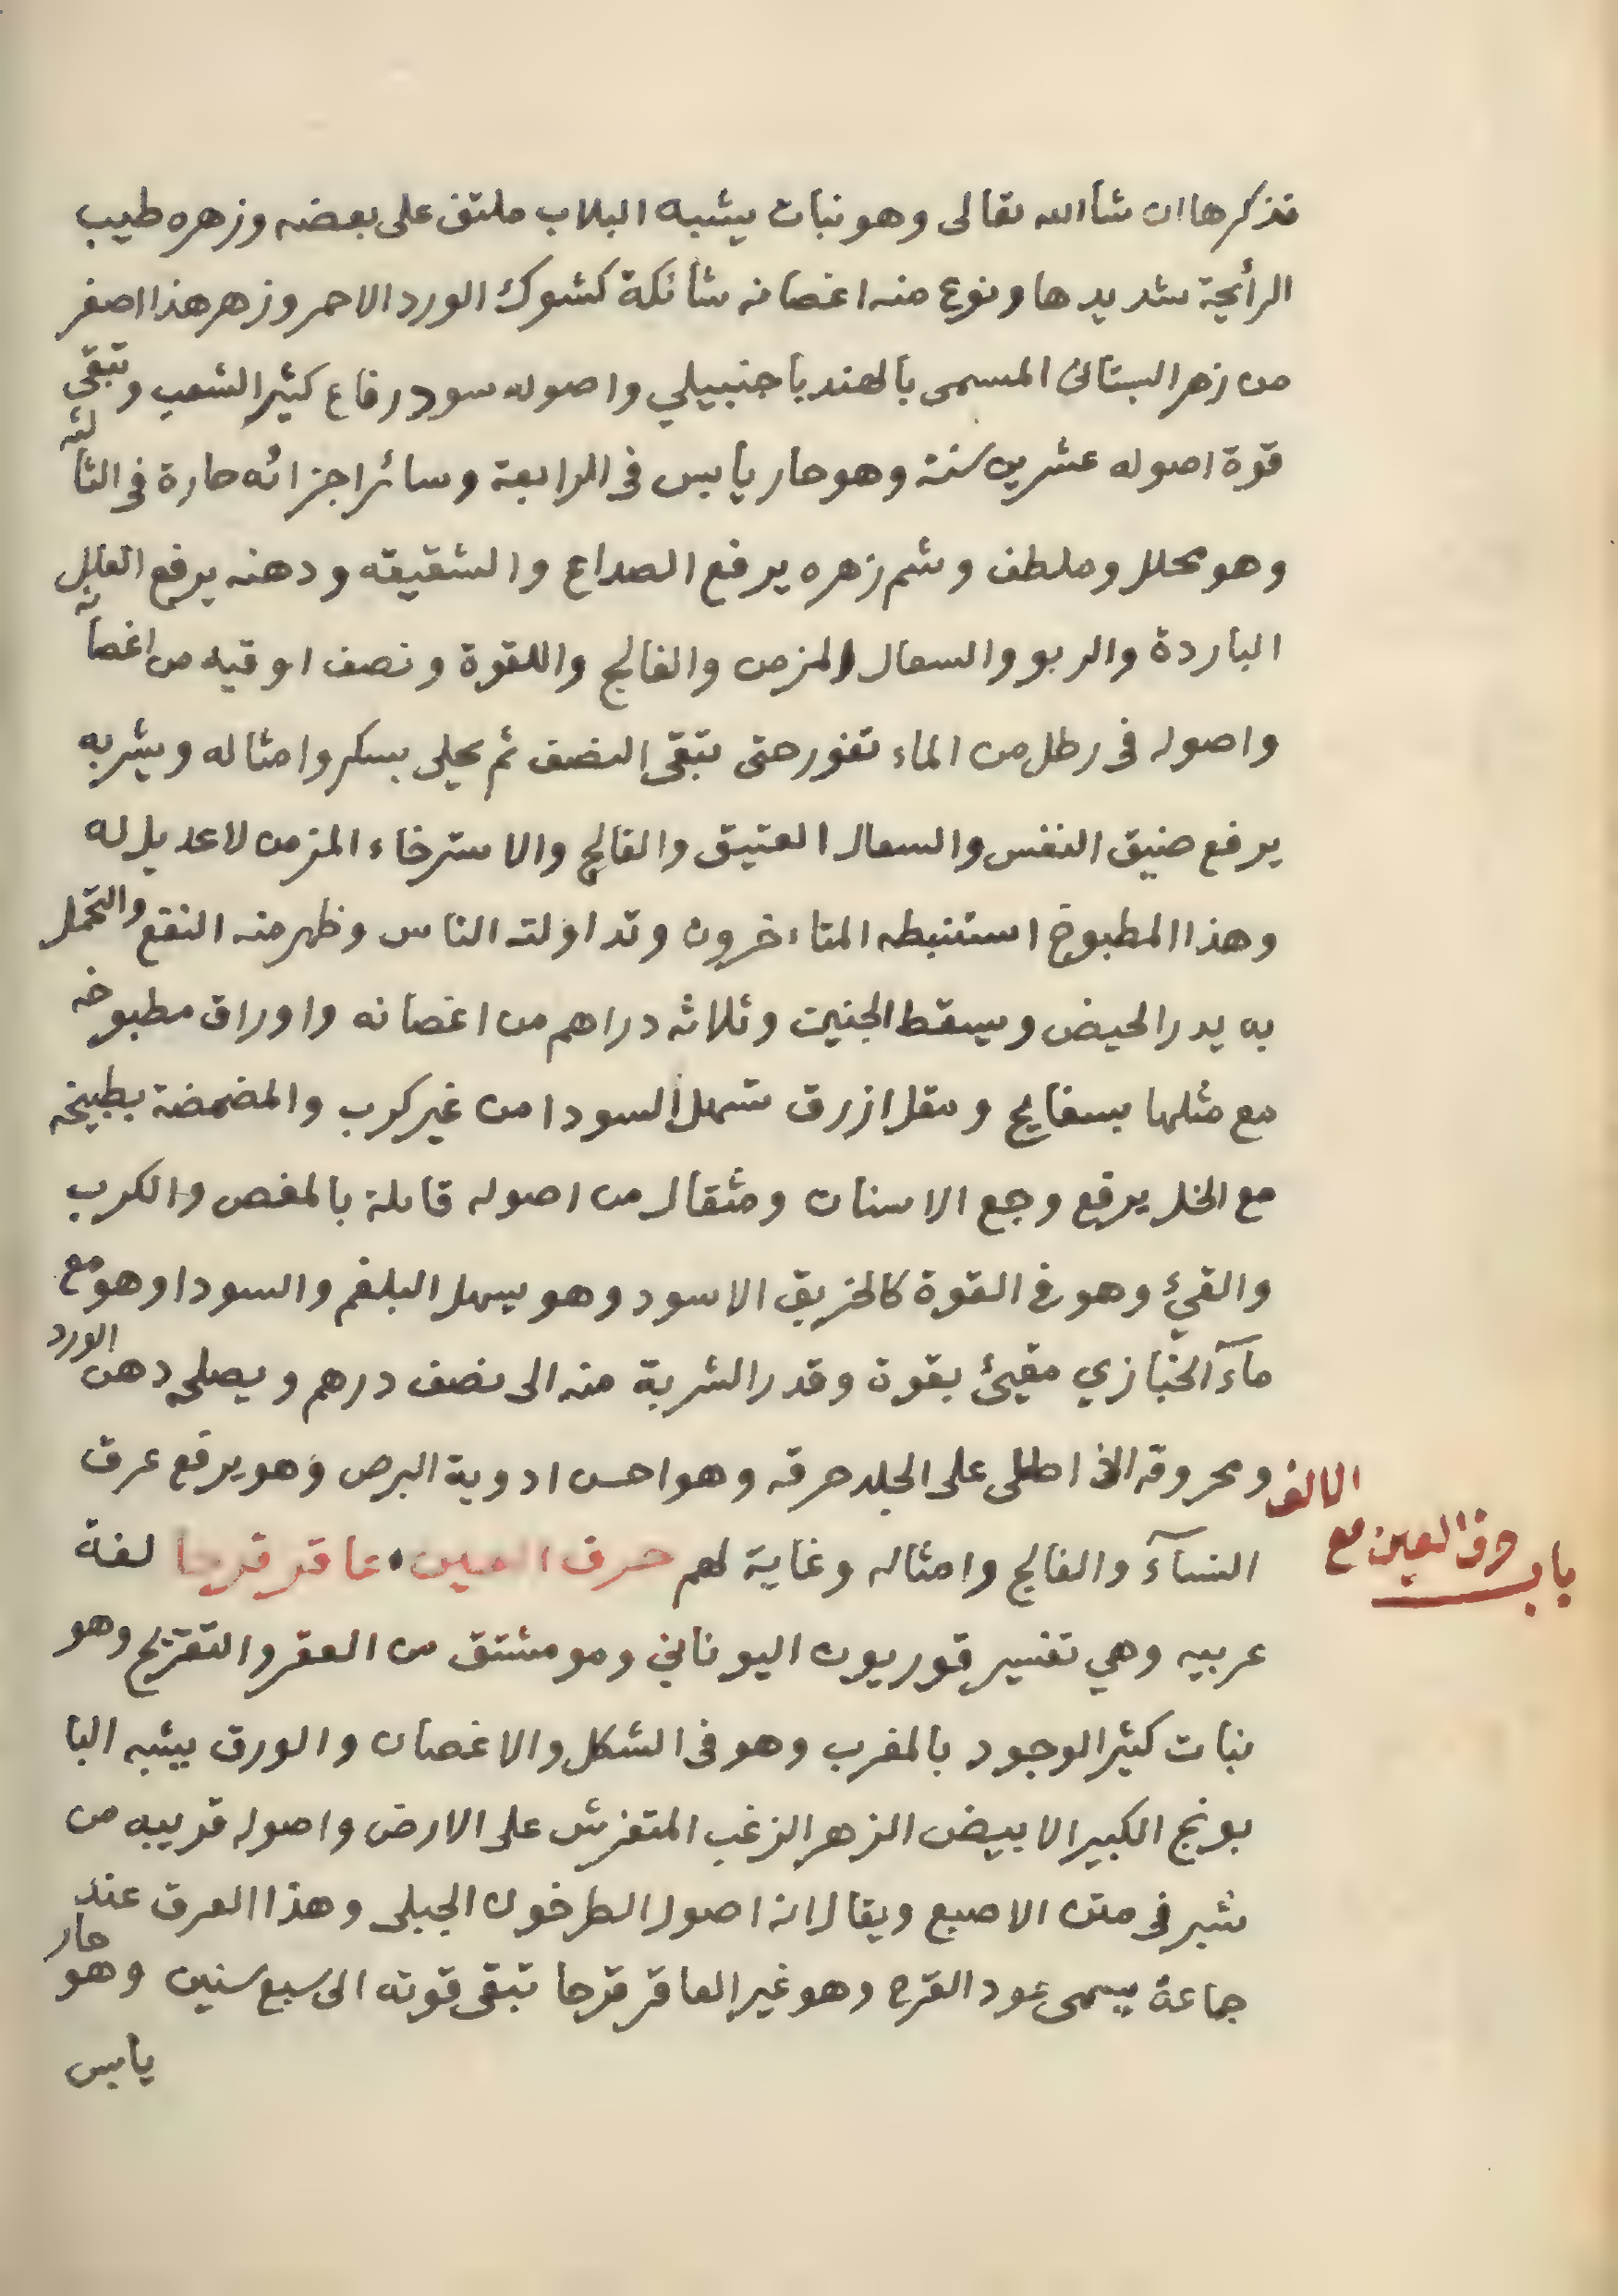 نذكرها ان شاالله تعالى وهو نبات يشبه البلاب ملتف على بعضه وزهره طيب
الرأيحة شديدها ونوع منه اغصانه شائكة كشوك الورد الاحمر وزهر هذا اصغر
من زهر البستانى المسمى بالهند باجنبيلي واصوله سود رفاع كثير الشعب وتبقى
قوة اصوله عشرين سنة وهو حار يابس فى الرابعة وسائر اجزائه حارة فى الثالثه
وهو محلل وملطف وشم زهره يرفع الصداع والشقيقه ودهنه يرفع العلل
الباردة والربو والسعال المزمن والفالج واللقوة ونصف اوقيه من اغصانه
واصوله فى رطل من الماء تفور حتى تبقى النصف ثم يحلى بسكر وامثاله ويشربه
يرفع ضيق النفس والسعال العتيق والفالج والاسترخاء المزمن لاعديل له
وهذا المطبوخ استنبطه المتاءخرون وتداولته الناس وظهر منه النفع والتحمل
به يدر الحيض ويسقط الجنين وثلاثه دراهم من اغصانه واوراق مطبوخه
مع مثلها بسفايج ومقل ازرق تسهل السودا من غير كرب والمضمضة بطبيخه
مع الخل يرفع وجع الاسنان ومثقال من اصوله قاتلة بالمغص والكرب
والقيئ وهو فى القوة كالخربق الاسود وهو يسهل البلغم والسودا وهو مع
مآء الخبازي مقيئ بقوة وقدر الشربة منه الى نصف درهم ويصلحه دهن الورد
ومحروقه اذا طلى على الجلد حرقه وهو احسن ادوية البرص وهو يرفع عرق
النسآء والفالج وامثاله وغاية لهم حرف العين عاقر قرحا لغة
باب حرف العين مع الالف
عربيه وهي تفسير قوريون اليوناني وهو مشتق من العقر والتقريح وهو
نبات كثير الوجود بالمغرب وهو فى الشكل والاغصان والورق يشبه البا
بونج الكبير الابيض الزهر الزغب المتفرش على الارض واصوله قريبه من
شبر فى متن الاصبع ويقال انه اصول الطرخون الجبلى وهذا العرق عند
جماعة يسمى عود القرح وهو غير العاقر قرحا تبقى قوته الى سبع سنين وهو حار
يابس